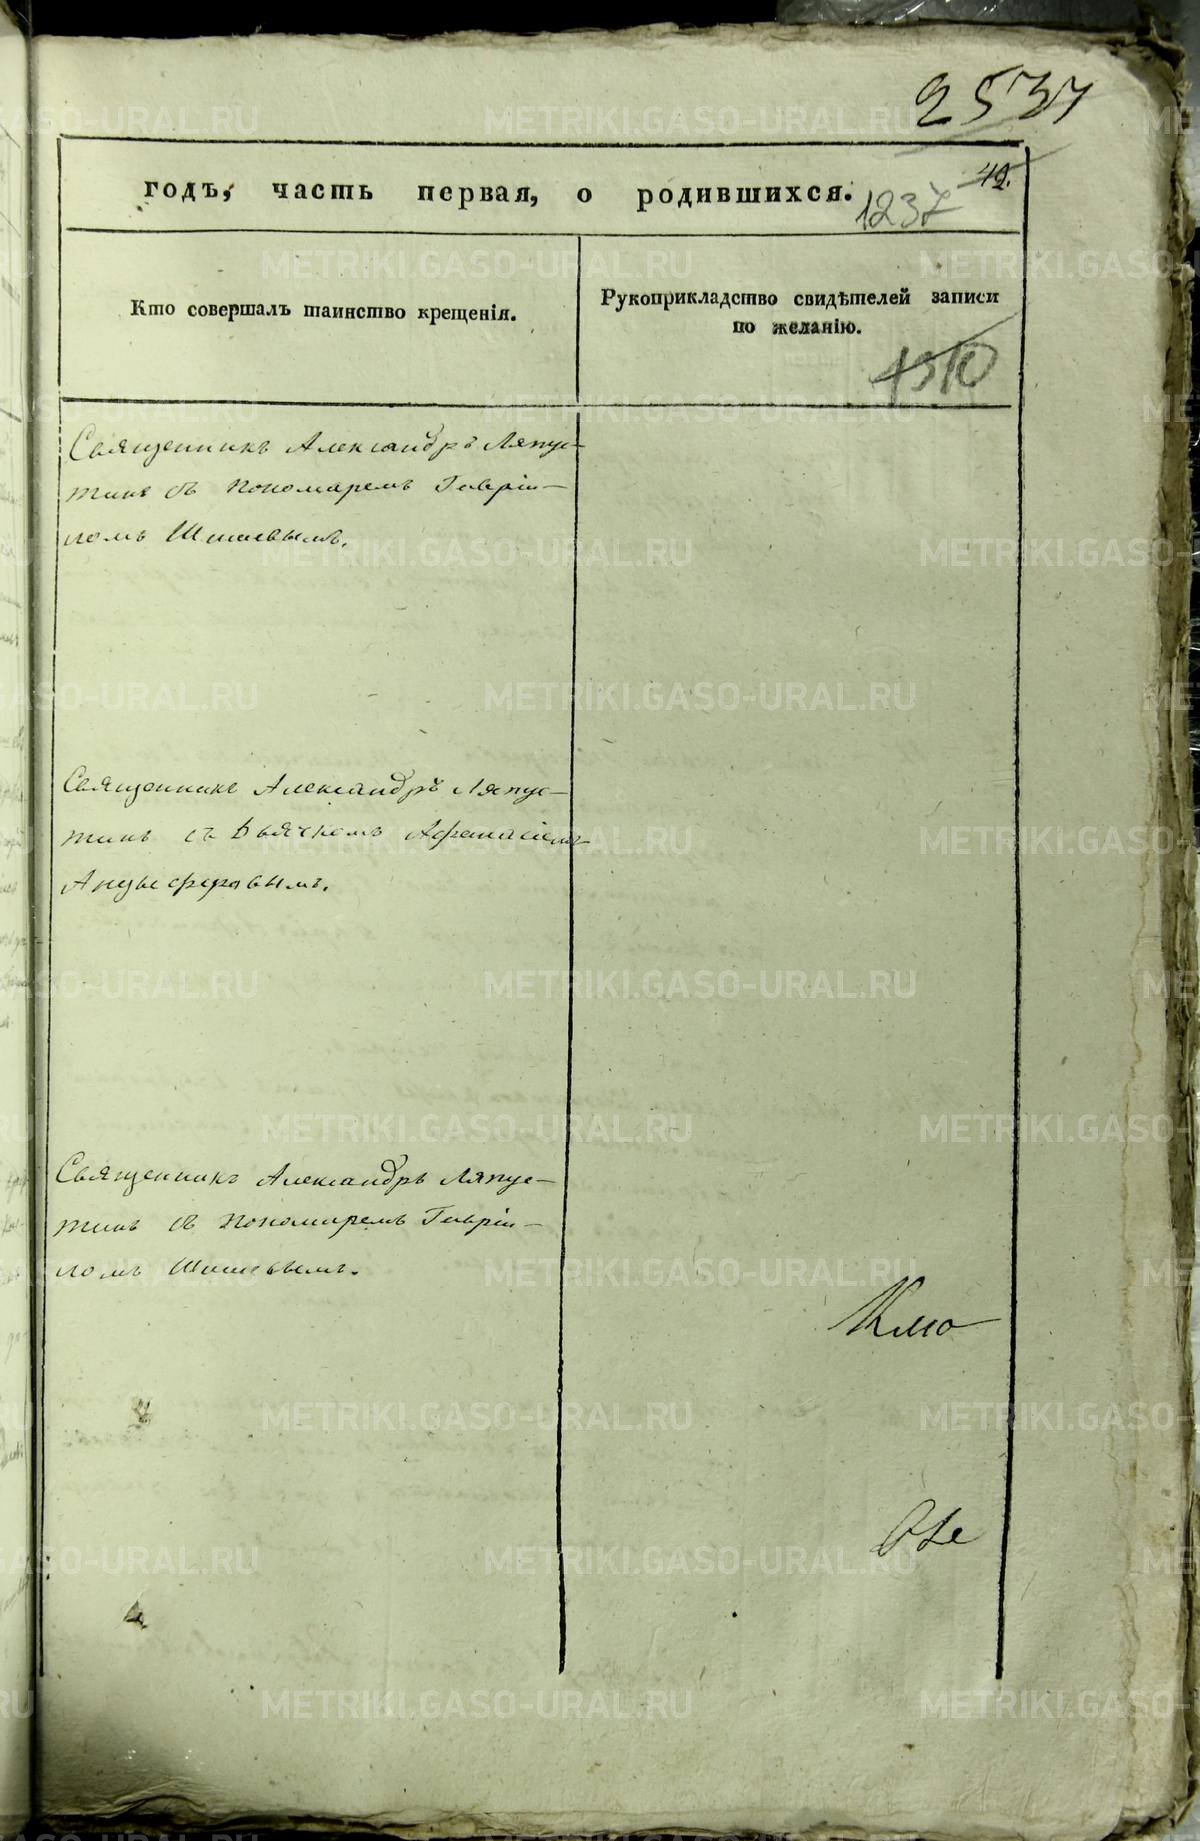 2537
42.
годъ, часть первая, о родившихся.
1237
Кто совершалъ таинство крещенія.
Рукоприкладство свидѣтелей записи
по желанію.
1310
Священникъ Александръ Ляпус-
тинъ съ Пономаремъ Гаврiи-
ломъ Шишевымъ.
Священникъ Александръ Ляпус-
тинъ съ Дьячкомъ Афанасіемъ
Анцыферовымъ.
Священникъ Александръ Ляпус-
тинъ съ Пономаремъ Гаврiи-
ломъ Шишевымъ.
METRIKI.GASO-URAL.RU